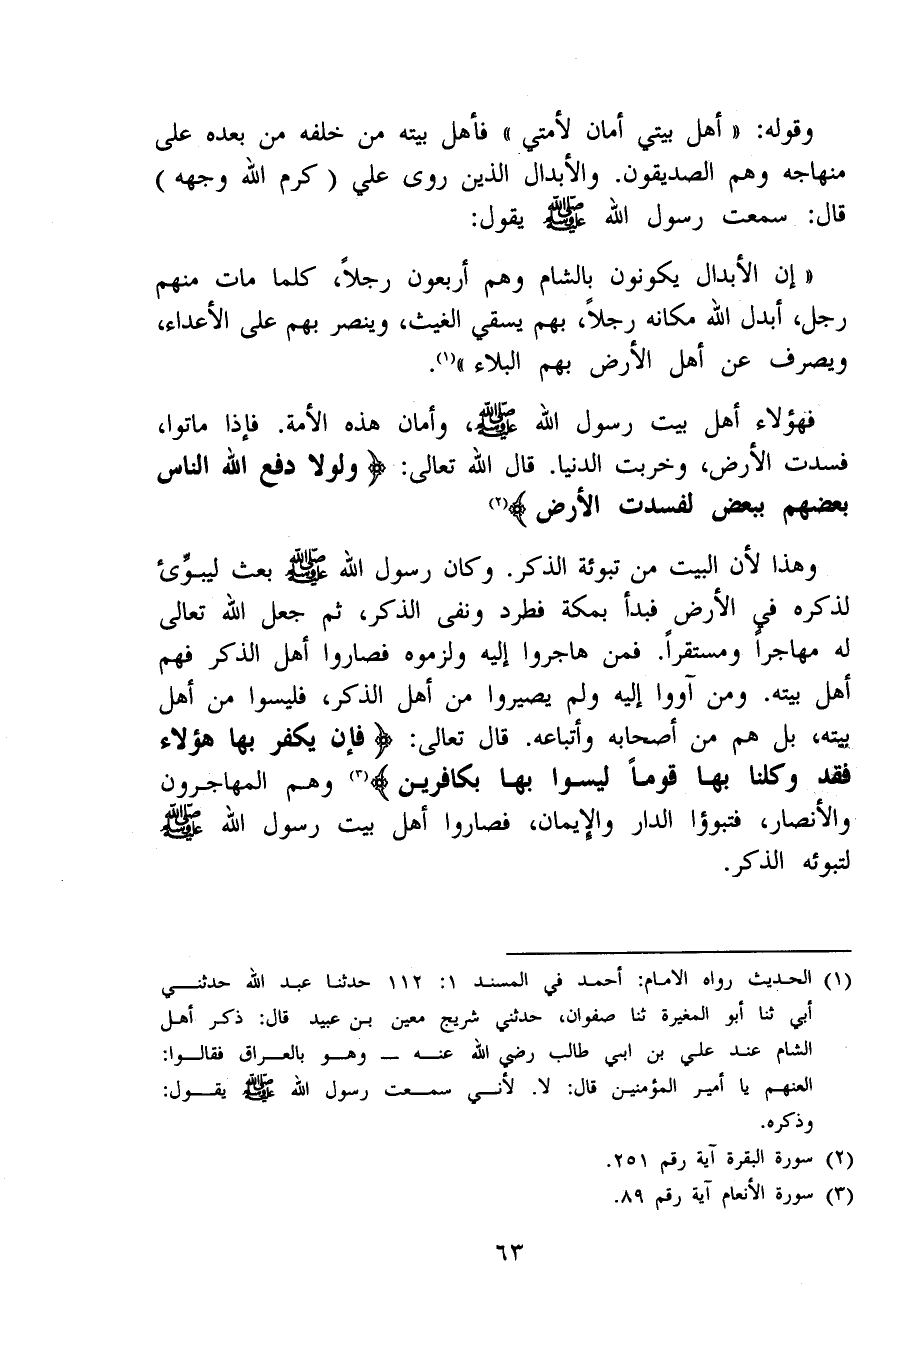 وقوله: « أهل بيتي أمان لأمتي » فأهل بيته من خلفه من بعده على
منهاجه وهم الصديقون. والأبدال الذين روى علي ( كرم الله وجهه )
قال: سمعت رسول الله ﷺ يقول:
« إن الأبدال يكونون بالشام وهم أربعون رجلاً، كلما مات منهم
رجل، أبدل الله مكانه رجلاً، بهم يسقي الغيث، وينصر بهم على الأعداء،
ويصرف عن أهل الأرض بهم البلاء »(١).
فهؤلاء أهل بيت رسول الله ﷺ، وأمان هذه الأمة. فإذا ماتوا،
فسدت الأرض، وخربت الدنيا. قال الله تعالى: ﴿ ولولا دفع الله الناس
بعضهم ببعض لفسدت الأرض ﴾(٢)
وهذا لأن البيت من تبوئة الذكر. وكان رسول الله ﷺ بعث ليبوِّئ
لذكره في الأرض فبدأ بمكة فطرد ونفى الذكر، ثم جعل الله تعالى
له مهاجراً ومستقراً. فمن هاجروا إليه ولزموه فصاروا أهل الذكر فهم
أهل بيته. ومن آووا إليه ولم يصيروا من أهل الذكر، فليسوا من أهل
بيته، بل هم من أصحابه وأتباعه. قال تعالى: ﴿ فإن يكفر بها هؤلاء
فقد وكلنا بها قوماً ليسوا بها بكافرين ﴾(٣) وهم المهاجرون
والأنصار، فتبوؤا الدار والإيمان، فصاروا أهل بيت رسول الله ﷺ
لتبوئه الذكر.
(١) الحديث رواه الامام: أحمد في المسند ١: ١١٢ حدثنا عبد الله حدثني
أبي ثنا أبو المغيرة ثنا صفوان، حدثني شريج معين بن عبيد قال: ذكر أهل
الشام عند علي بن ابي طالب رضي الله عنه ــ وهو بالعراق فقالوا:
العنهم يا أمير المؤمنين قال: لا. لأنني سمعت رسول الله ﷺ يقول:
وذكره.
(٢) سورة البقرة آية رقم ٢٥١.
(٣) سورة الأنعام آية رقم ٨٩.
٦٣